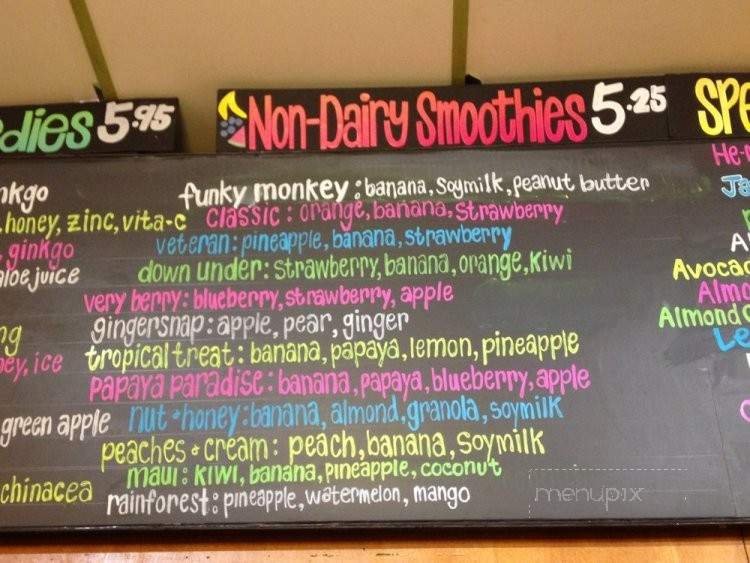 dies 5.95
Non-Dairy Smoothies 5.25
SPE
nkgo
honey, zinc, vita-c
ginkgo
aloe juice
ng
ey, ice
green apple
chinacea
funky monkey: banana, soymilk, peanut butter
classic: orange, banana, strawberry
veteran: pineapple, banana, strawberry
down under: strawberry, banana, orange, kiwi
very berry: blueberry, strawberry, apple
gingersnap: apple, pear, ginger
tropical treat: banana, papaya, lemon, pineapple
papaya paradise: banana, papaya, blueberry, apple
nut + honey: banana, almond, granola, soymilk
peaches + cream: peach, banana, soymilk
maui: kiwi, banana, pineapple, coconut
rainforest: pineapple, watermelon, mango
He-
Ja
A
Avocad
Almo
Almond
Le
menupix